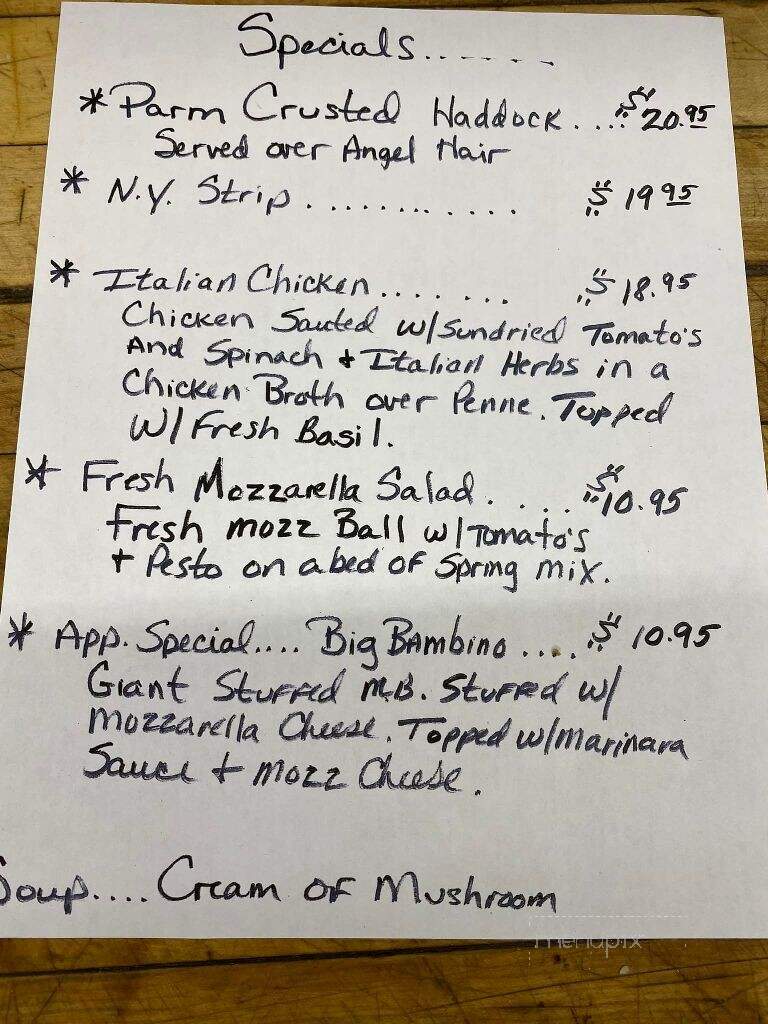 Specials.......
* Parm Crusted Haddock.... $20.95
Served over Angel Hair
* N.Y. Strip............ $1995
* Italian Chicken....... $18.95
Chicken Sauted w/Sundried Tomato's
And Spinach + Italian Herbs in a
Chicken Broth over Penne. Topped
W/ Fresh Basil.
* Fresh Mozzarella Salad.... $10.95
Fresh mozz Ball w/Tomato's
+ Pesto on a bed of Spring mix.
* App. Special.... Big Bambino.... $10.95
Giant Stuffed M.B. Stuffed w/
Mozzarella Cheese. Topped w/marinara
Sauce + Mozz Cheese.
Soup.... Cream OF Mushroom
menupix